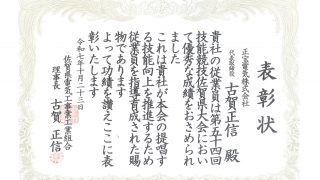 表彰状
正宝電気株式会社
代表取締役
古賀正信 殿
貴社の従業員は第五十四回
技能競技佐賀県大会におい
て優秀な成績をおさめられ
ました
これは貴社が本会の提唱す
る技能向上を推進するため
従業員を指導育成された賜
物であります
よって功績を讃えここに表
彰いたします
令和七年十月二十三日
佐賀県電気工事業工業組合
理事長 古賀 正信